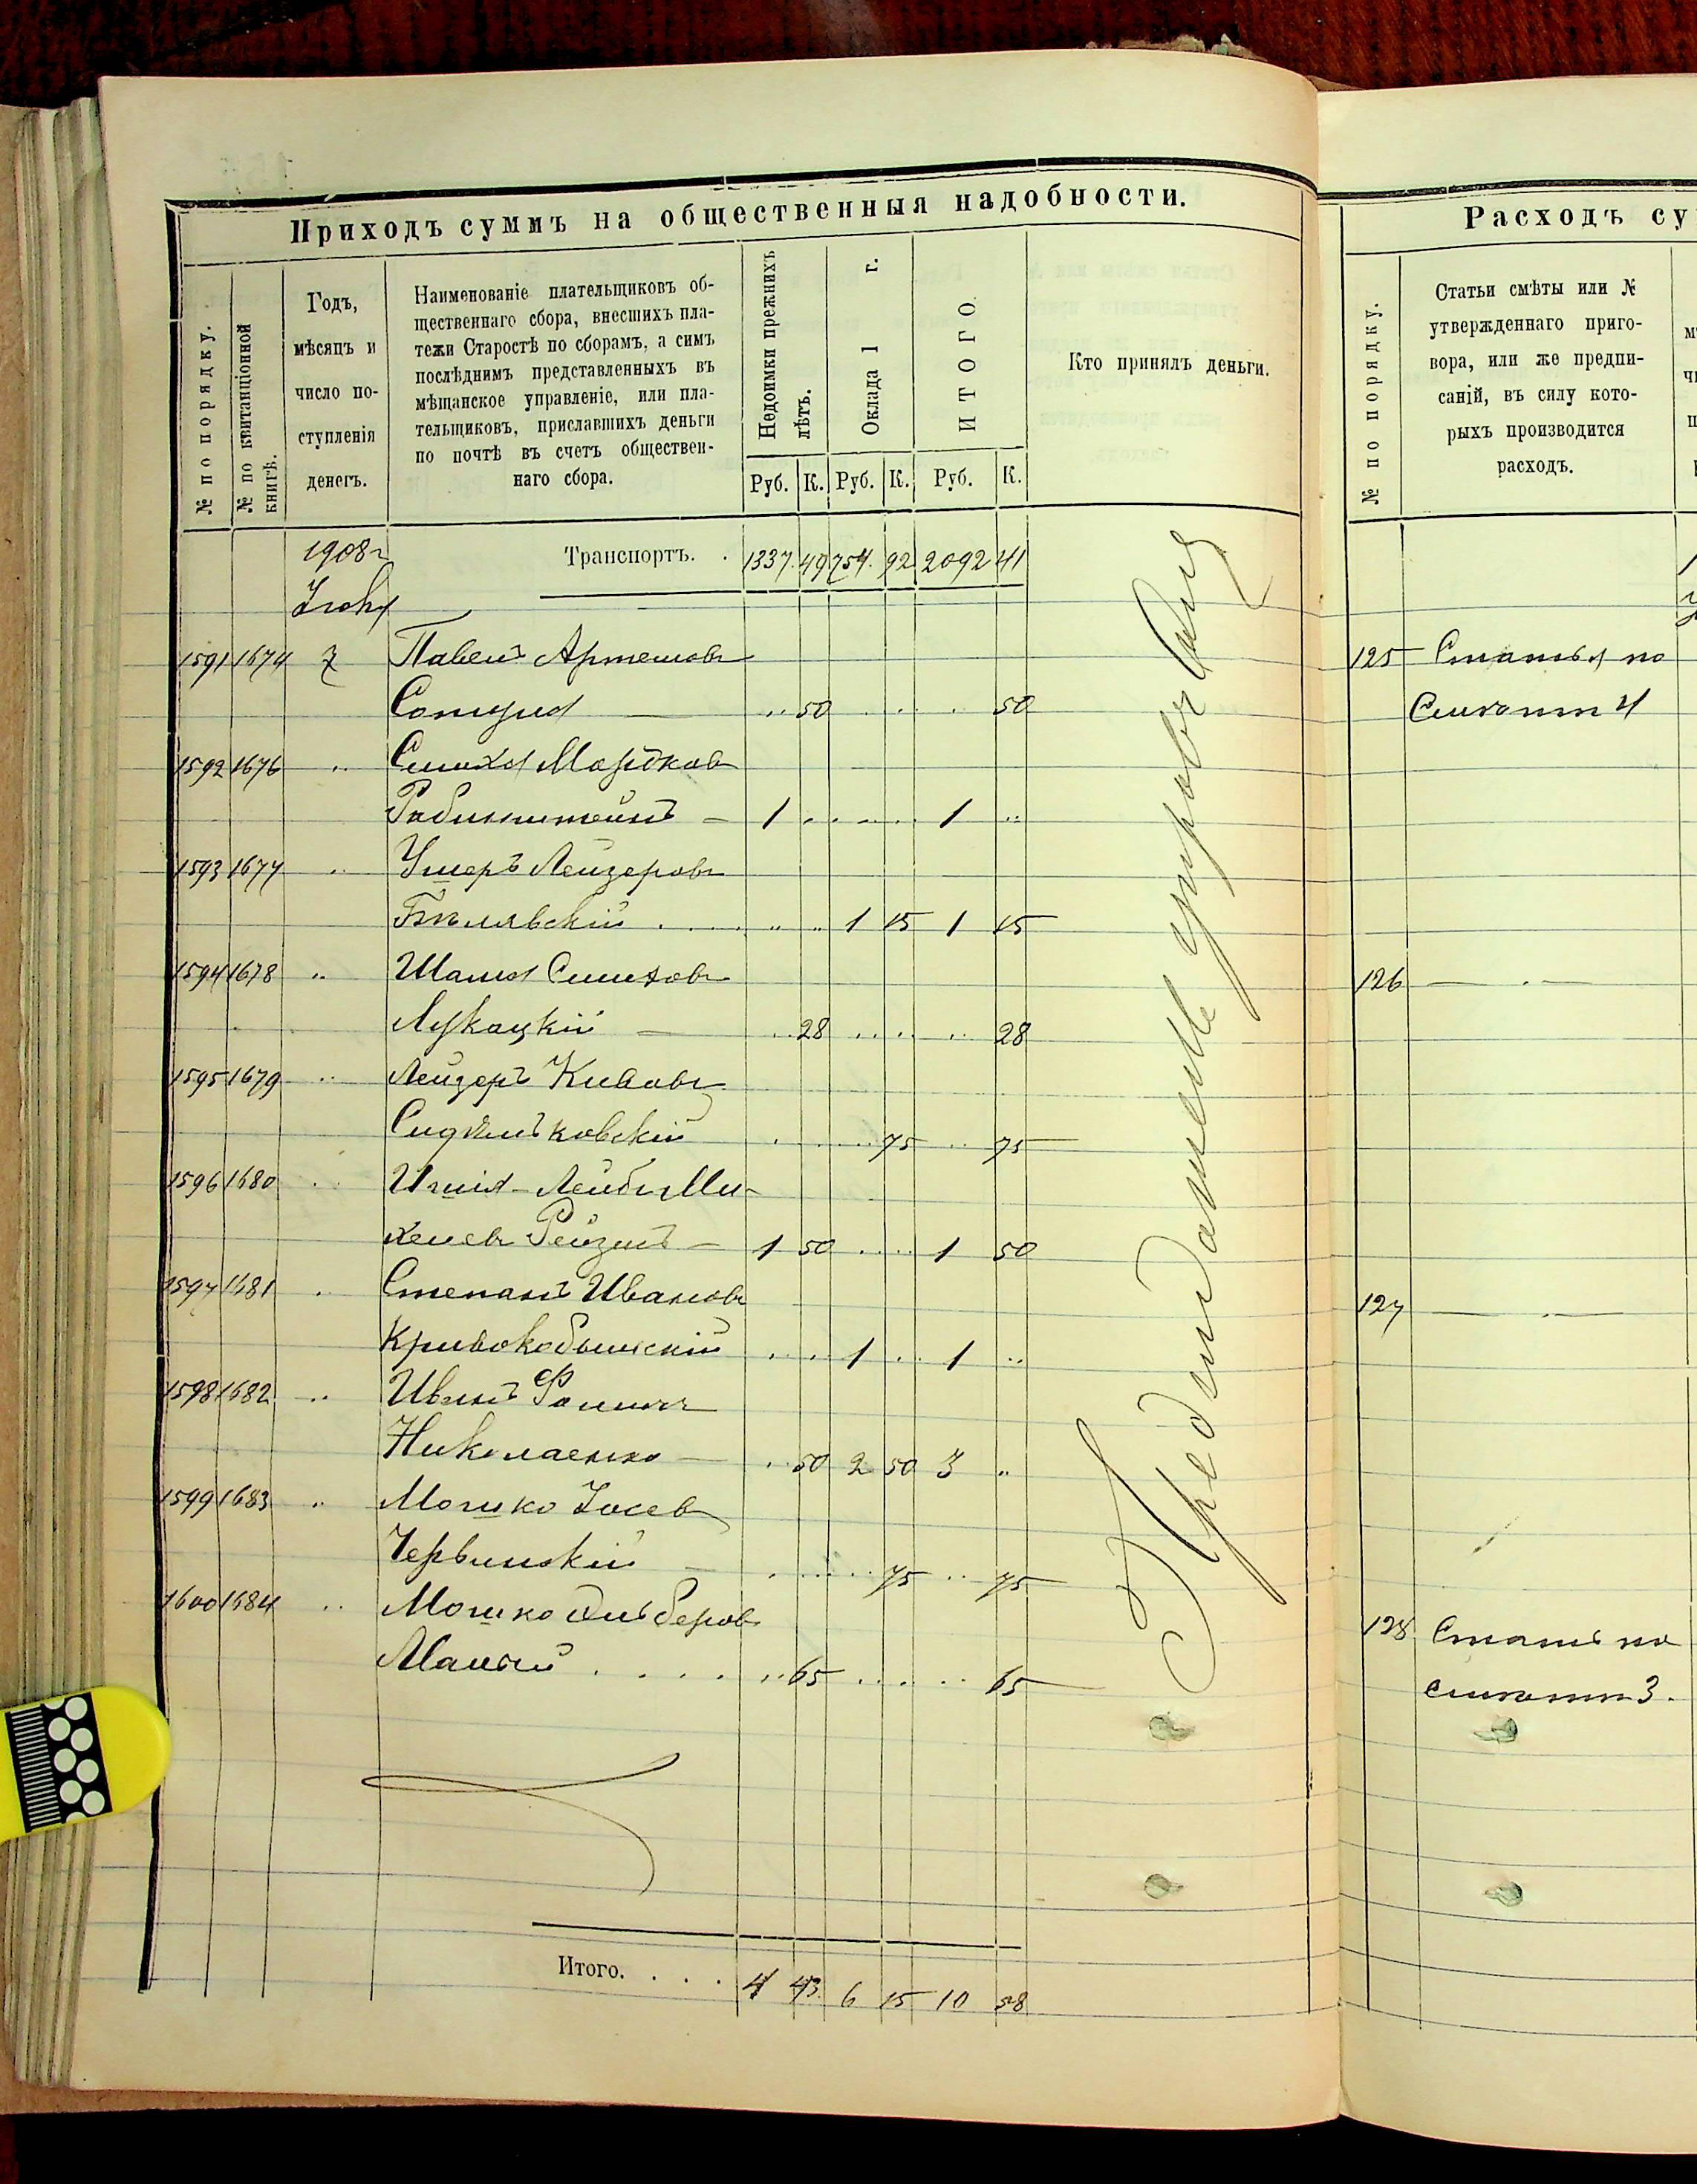 Приходъ суммъ на общественныя надобности.
№ по порядку.
№ по квитанціонной книгѣ.
Годъ,
мѣсяцъ и
число по-
ступленія
денегъ.
Наименованіе плательщиковъ об-
щественнаго сбора, внесшихъ пла-
тежи Старостѣ по сборамъ, а симъ
послѣднимъ представленныхъ въ
мѣщанское управленіе, или пла-
тельщиковъ, приславшихъ деньги
по почтѣ въ счетъ обществен-
наго сбора.
Недоимки прежнихъ лѣтъ.
Оклада 1 г.
ИТОГО.
Руб. К. Руб. К. Руб. К.
Кто принялъ деньги.
1908 г Транспортъ. . 1337. 49 754. 92 2092 41
1591 1674 7 Павелъ Артемовъ
.. 50 . . . 50
1592 1676 .. Симха Мордков
Рабинштейнъ — 1 . . . . 1 ..
1593 1677 .. Ушеръ Лейзеровъ
Бѣлявскій . . . . .. .. 1 15 1 15
1594 1678 .. Шамя Симховъ
Лукацкій — .. 28 . . .. 28
1595 1679 .. Лейзеръ Кивовъ
Сидельковскій . . . 75 .. 75
1596 1680 .. Ицшя-Лейбъ Ми-
хелевъ Рейзинъ — 1 50 . . 1 50
1597 1681 . Степанъ Ивановъ
Кривокобыльскій . . 1 .. 1 ..
1598 1682 ..
Николаенко — . 50 2 50 3 ..
1599 1683 .. Мошко Іосев
Червинскій — . . . 75 .. 75
1600 1684 .. Мошко Эльберов
Малый . . . . .. 65 . . . 65
Итого. . . . 4 43 6 15 10 58
Предитанные
Расходъ су
№ по порядку.
Статьи смѣты или №
утвержденнаго приго-
вора, или же предпи-
саній, въ силу кото-
рыхъ производится
расходъ.
125 Статья по
4
126 — . —
127 — . —
128 Стать по
3.